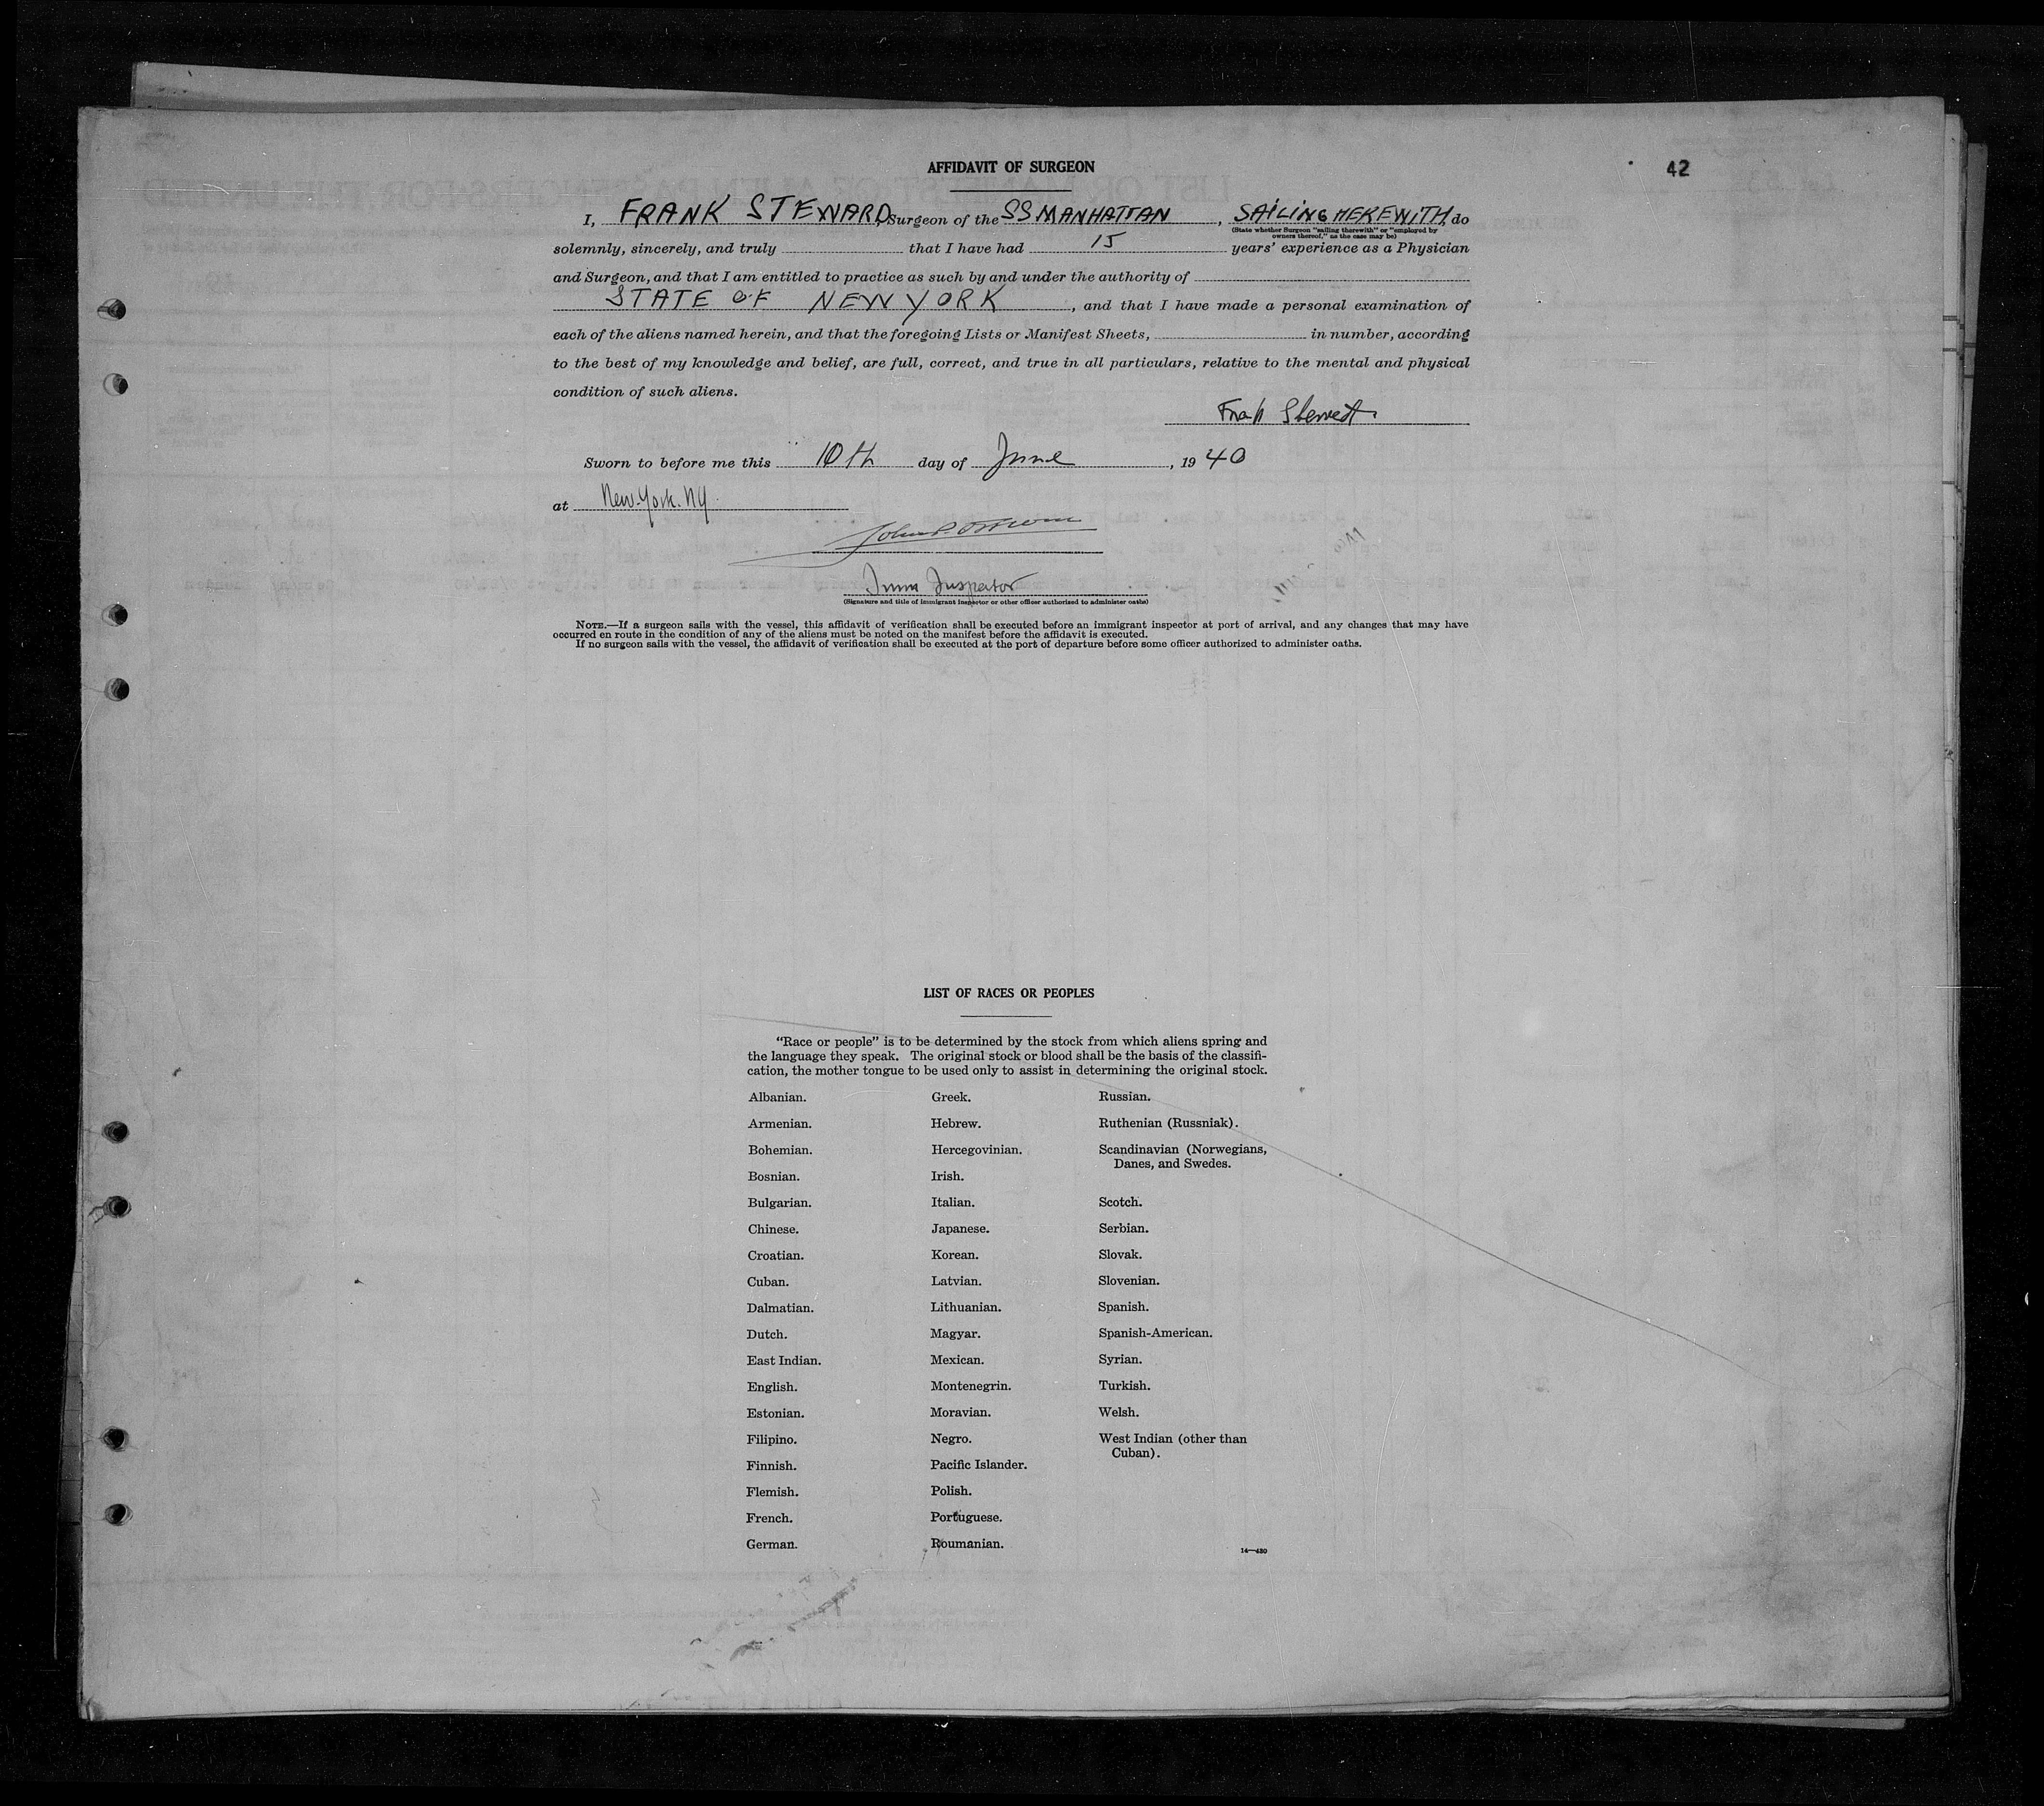 AFFIDAVIT OF SURGEON
42
I, FRANK STEWARD, Surgeon of the SS MANHATTAN, SAILING HEREWITH, do
(State whether Surgeon "sailing therewith" or "employed by
owners thereof," as the case may be)
solemnly, sincerely, and truly that I have had 15 years' experience as a Physician
and Surgeon, and that I am entitled to practice as such by and under the authority of
STATE OF NEW YORK, and that I have made a personal examination of
each of the aliens named herein, and that the foregoing Lists or Manifest Sheets, in number, according
to the best of my knowledge and belief, are full, correct, and true in all particulars, relative to the mental and physical
condition of such aliens.
Sworn to before me this 10th day of June, 1940
at New York. NY.
Imm Inspector
(Signature and title of immigrant inspector or other officer authorized to administer oaths)
NOTE.—If a surgeon sails with the vessel, this affidavit of verification shall be executed before an immigrant inspector at port of arrival, and any changes that may have
occurred en route in the condition of any of the aliens must be noted on the manifest before the affidavit is executed.
If no surgeon sails with the vessel, the affidavit of verification shall be executed at the port of departure before some officer authorized to administer oaths.
LIST OF RACES OR PEOPLES
"Race or people" is to be determined by the stock from which aliens spring and
the language they speak. The original stock or blood shall be the basis of the classifi-
cation, the mother tongue to be used only to assist in determining the original stock.
Albanian.
Armenian.
Bohemian.
Bosnian.
Bulgarian.
Chinese.
Croatian.
Cuban.
Dalmatian.
Dutch.
East Indian.
English.
Estonian.
Filipino.
Finnish.
Flemish.
French.
German.
Greek.
Hebrew.
Hercegovinian.
Irish.
Italian.
Japanese.
Korean.
Latvian.
Lithuanian.
Magyar.
Mexican.
Montenegrin.
Moravian.
Negro.
Pacific Islander.
Polish.
Portuguese.
Roumanian.
Russian.
Ruthenian (Russniak).
Scandinavian (Norwegians,
Danes, and Swedes.
Scotch.
Serbian.
Slovak.
Slovenian.
Spanish.
Spanish-American.
Syrian.
Turkish.
Welsh.
West Indian (other than
Cuban).
14—430